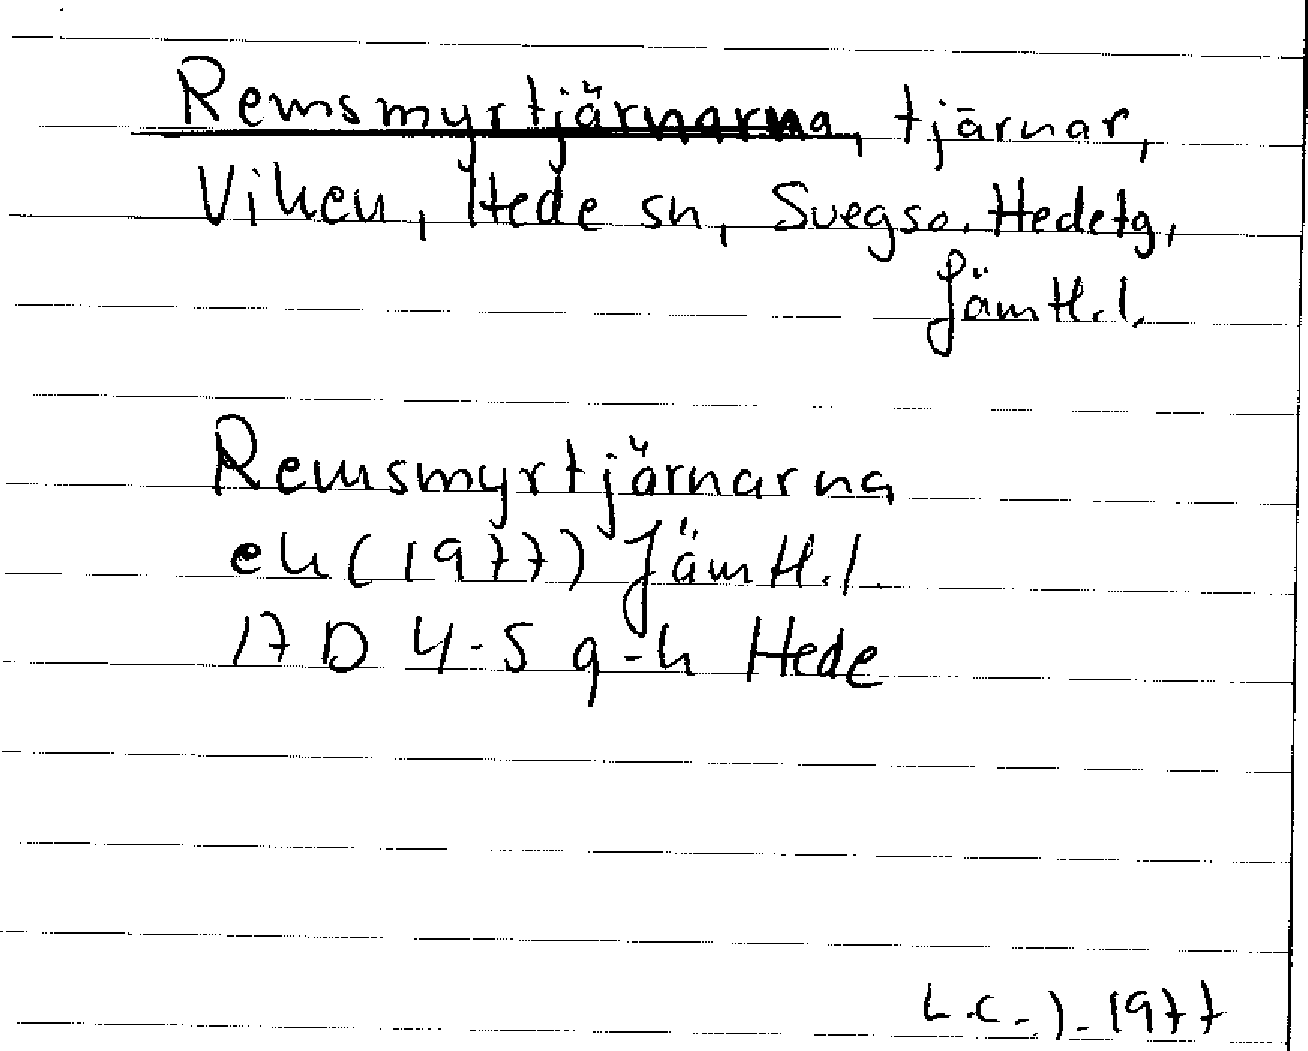 Remsmyrtjärnarna, tjärnar,
Viken, Hede sn, Svegs o. Hede tg,
Jämtl. l.
Remsmyrtjärnarna
ek (1977) Jämtl. l.
17 D 4-5 g-h Hede
L.C.J. 1977